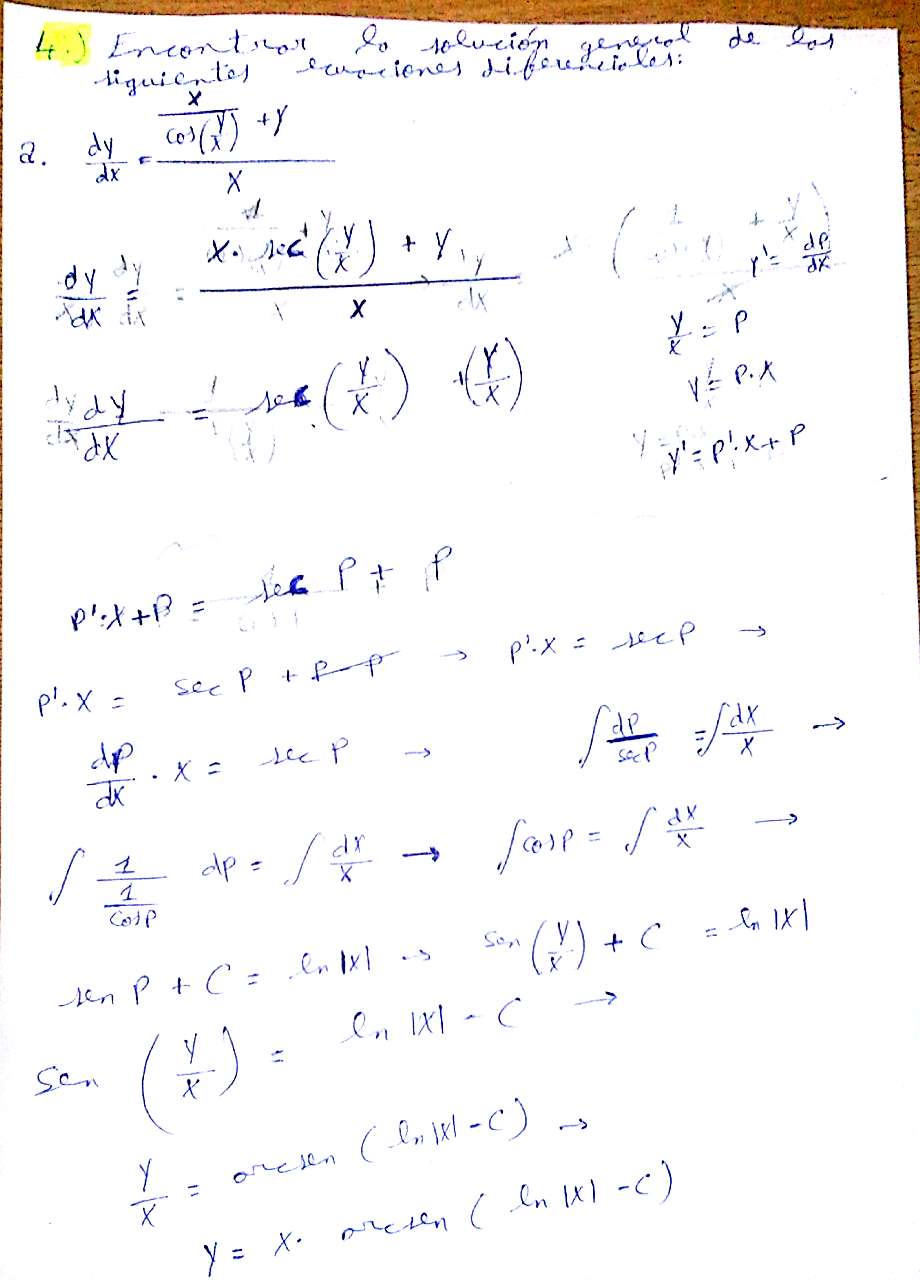 4.) Encontrar la solución general de las
siguientes ecuaciones diferenciales:
a. dy/dx = (x/cos(y/x) + y)/x
dy/dx = (x · sec(y/x) + y)/x
y' = dp/dx
y/x = p
dy/dx = sec(y/x) + (y/x)
y = p.x
y' = p'.x + p
p'.x + p = sec p + p
p'.x = sec p + p - p → p'.x = sec p →
dp/dx . x = sec p → ∫ dp/sec p = ∫ dx/x →
∫ 1/(1/cos p) dp = ∫ dx/x → ∫ cos p = ∫ dx/x →
sen p + C = ln |x| → sen (y/x) + C = ln |x|
sen (y/x) = ln |x| - C →
y/x = arcsen (ln |x| - C) →
y = x. arcsen (ln |x| - C)